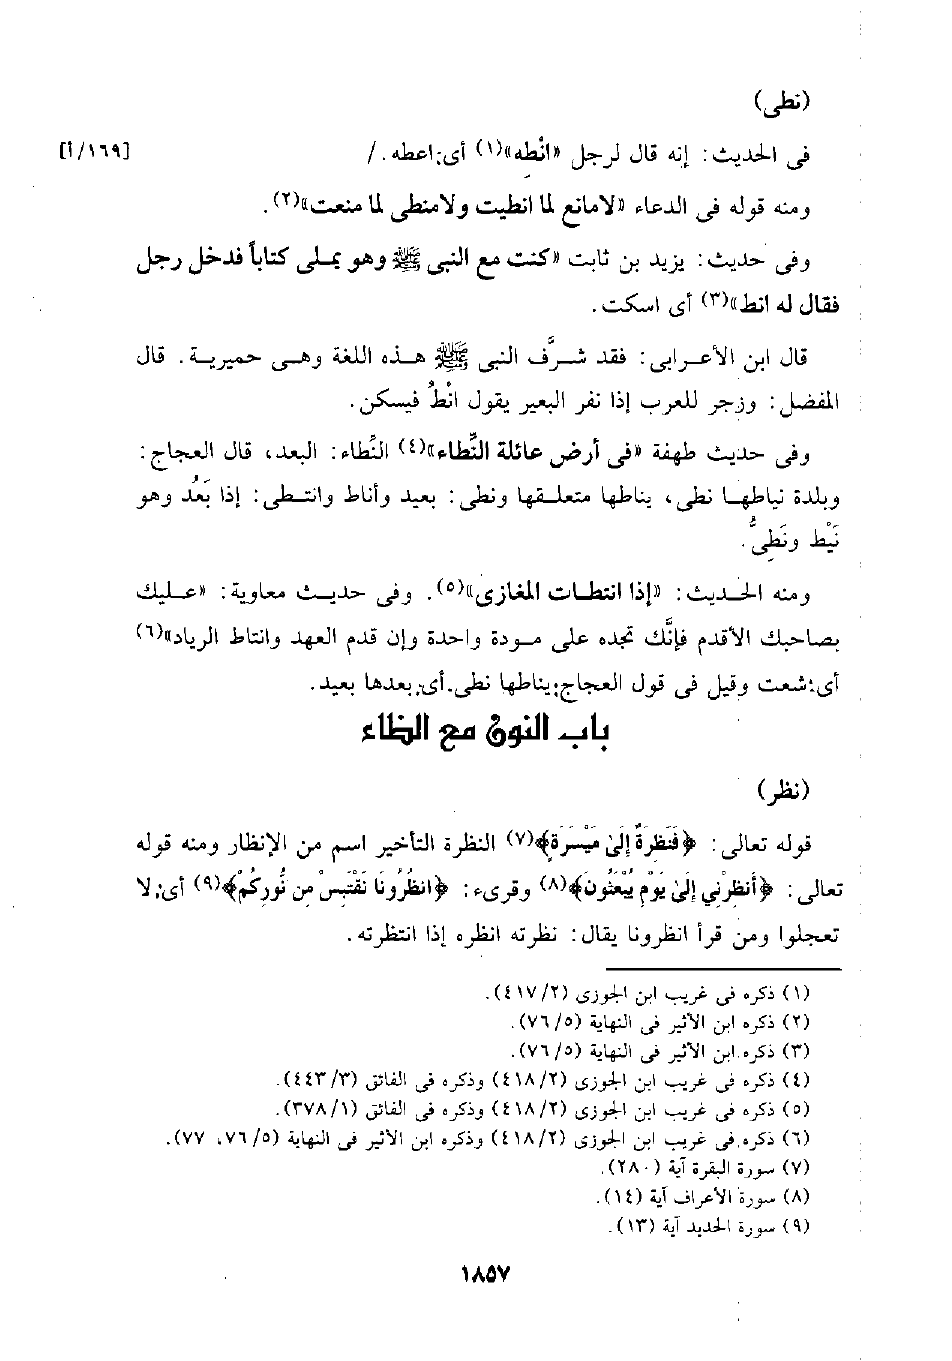 (نطى)
فى الحديث: إنه قال لرجل «انْطِه»(١) أى: اعطه. / [١٦٩/أ]
ومنه قوله فى الدعاء «لامانع لما انطيت ولامنطى لما منعت»(٢).
وفى حديث: يزيد بن ثابت «كنت مع النبى ﷺ وهو يملى كتاباً فدخل رجل
فقال له انط»(٣) أى اسكت.
قال ابن الأعرابى: فقد شرَّف النبى ﷺ هذه اللغة وهى حميرية. قال
المفضل: وزجر للعرب إذا نفر البعير يقول انْطُ فيسكن.
وفى حديث طهفة «فى أرض عائلة النِّطاء»(٤) النِّطاء: البعد، قال العجاج:
وبلدة نياطها نطى، يناطها متعلقها ونطى: بعيد وأناط وانتطى: إذا بَعُد وهو
نَيْط ونَطِىُّ.
ومنه الحديث: «إذا انتطات المغازى»(٥). وفى حديث معاوية: «عليك
بصاحبك الأقدم فإنَّك تجده على مودة واحدة وإن قدم العهد وانتاط الرياد»(٦)
أى: شعت وقيل فى قول العجاج: يناطها نطى. أى: بعدها بعيد.
باب النون مع الظاء
(نظر)
قوله تعالى: ﴿فَنَظِرَةٌ إِلَىٰ مَيْسَرَةٍ﴾(٧) النظرة التأخير اسم من الإنظار ومنه قوله
تعالى: ﴿أَنظِرْنِي إِلَىٰ يَوْمِ يُبْعَثُونَ﴾(٨) وقرىء: ﴿انظُرُونَا نَقْتَبِسْ مِن نُّورِكُمْ﴾(٩) أى: لا
تعجلوا ومن قرأ انظرونا يقال: نظرته انظره إذا انتظرته.
(١) ذكره فى غريب ابن الجوزى (٤١٧/٢).
(٢) ذكره ابن الأثير فى النهاية (٧٦/٥).
(٣) ذكره ابن الأثير فى النهاية (٧٦/٥).
(٤) ذكره فى غريب ابن الجوزى (٤١٨/٢) وذكره فى الفائق (٤٤٣/٣).
(٥) ذكره فى غريب ابن الجوزى (٤١٨/٢) وذكره فى الفائق (٣٧٨/١).
(٦) ذكره فى غريب ابن الجوزى (٤١٨/٢) وذكره ابن الأثير فى النهاية (٧٦/٥، ٧٧).
(٧) سورة البقرة آية (٢٨٠).
(٨) سورة الأعراف آية (١٤).
(٩) سورة الحديد آية (١٣).
١٨٥٧